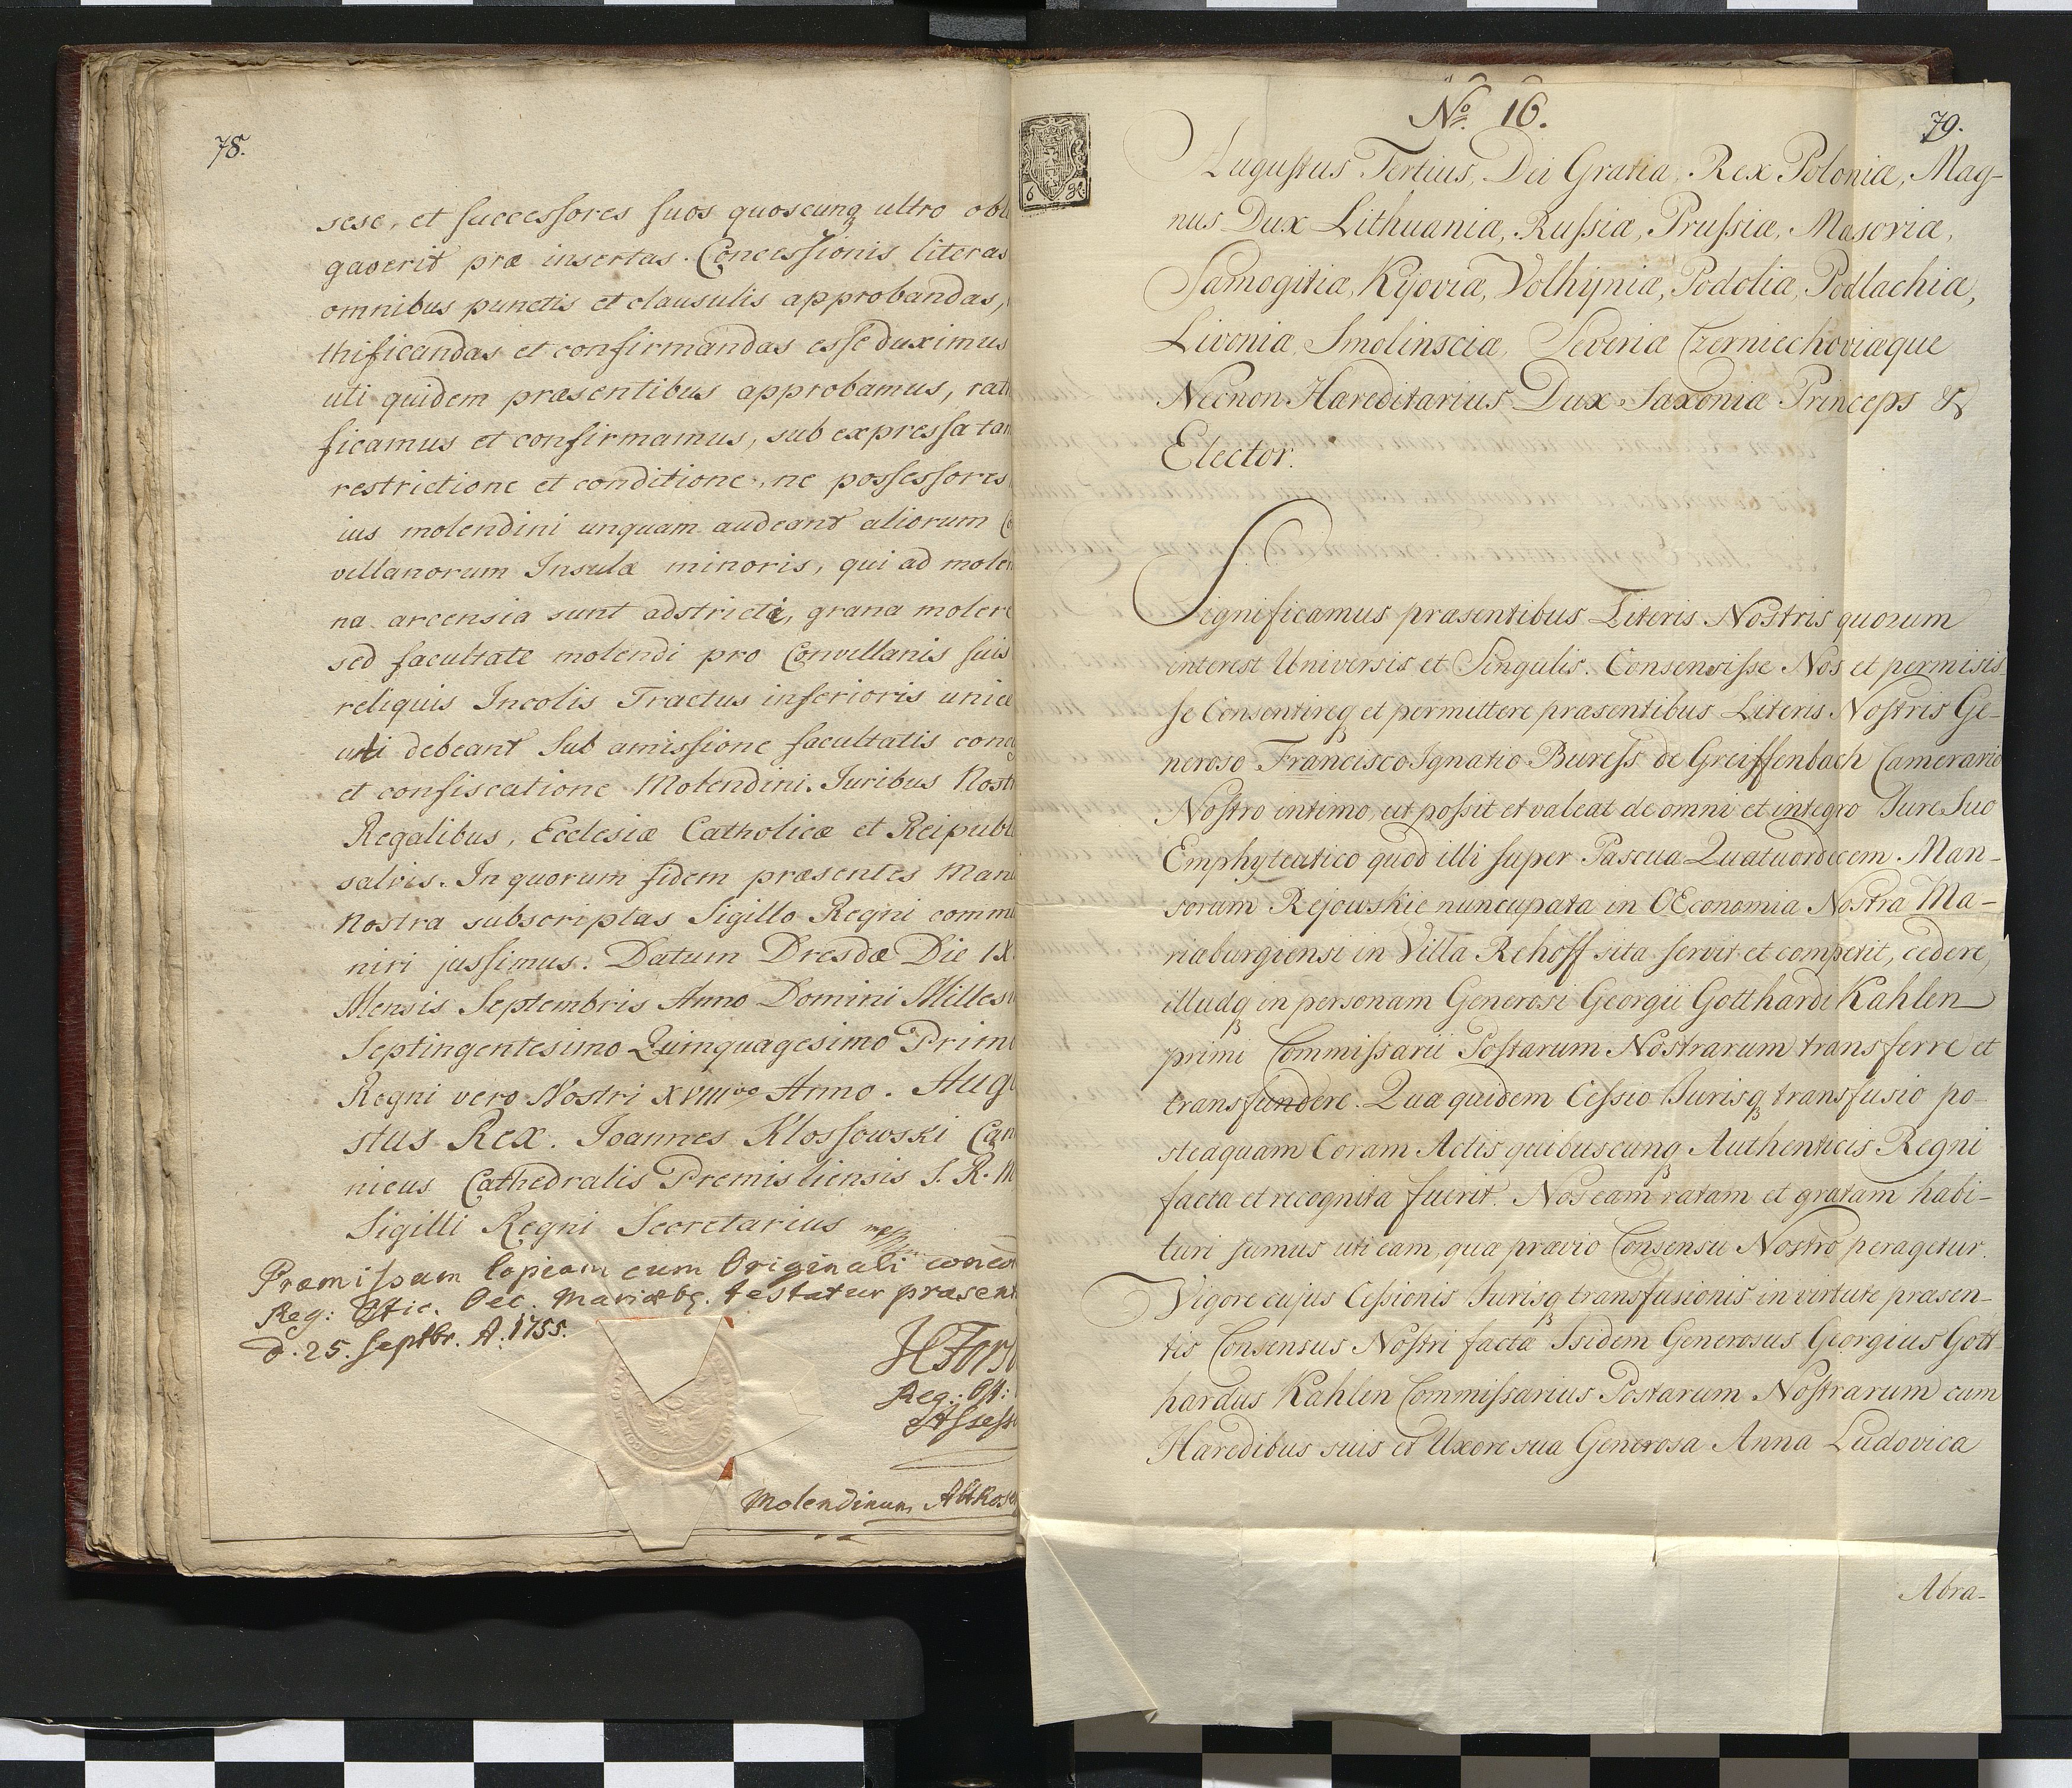 78.
sese, et successores suos quoscunq ultro obli
gaverit præ insertas Concessionis literas
omnibus punctis et clausulis approbandas,
thificandas et confirmandas esse duximus
uti quidem præsentibus approbamus, rati
ficamus et confirmamus, sub expressa tam
restrictione et conditione, ne possessores
ius molendini unquam audeant aliorum Co
villanorum Insulæ minoris, qui ad molen
na arcensia sunt adstricti, grana molere
sed facultate molendi pro Convillanis suis
reliquis Incolis Tractus inferioris unice
uti debeant sub amissione facultatis conc
et confiscatione Molendini. Juribus Nostr
Regalibus, Ecclesiæ Catholicæ et Reipubl
salvis. In quorum fidem præsentes Manu
Nostra subscriptas Sigillo Regni commu
niri jussimus. Datum Dresdæ Die IX
Mensis Septembris Anno Domini Millesi
Septingentesimo Quinquagesimo Primo
Regni vero Nostri XVIIIvo Anno. Augu
stus Rex. Joannes Klossowski Can
nicus Cathedralis Premisliensis S. R. M
Sigilli Regni Secretarius mpp
Præmissam Copiam cum Originali conco
Reg: Offic. Oec. Mariæbg. testatur præsent
d. 25. Septbr. A. 1755.
Reg: Off:
Assess
Molendinum Altrose
No. 16.
79.
6 gr.
Augustus Tertius, Dei Gratia, Rex Poloniæ, Mag-
nus Dux Lithuaniæ, Russiæ, Prussiæ, Masoviæ,
Samogitiæ, Kijoviæ, Volhyniæ, Podoliæ, Podlachiæ,
Livoniæ, Smolinsciæ, Severiæ Czerniechoviæque
Necnon Hæreditarius Dux Saxoniæ Princeps &
Elector.
Significamus præsentibus Literis Nostris quorum
interest Universis et Singulis. Consensisse Nos et permisis-
se Consentireq et permittere præsentibus Literis Nostris Ge-
neroso Francisco Ignatio Buress de Greiffenbach Camerario
Nostro intimo, ut possit et valeat de omni et integro Jure Suo
Emphyteutico quod illi super Pascua Quatuordecem Man-
sorum Rejowskie nuncupata in OEconomia Nostra Ma-
riaburgiensi in Villa Rehoff sita servit et competit, cedere,
illudq in personam Generosi Georgii Gotthardi Kahlen
primi Commissarii Postarum Nostrarum transferre et
transfundere. Quæ quidem Cessio Jurisq transfusio po-
steaquam Coram Actis quibuscunq Authenticis Regni
facta et recognita fuerit. Nos eam ratam et gratam habi-
turi sumus uti eam, quæ prævio Consensu Nostro peragetur.
Vigore cujus Cessionis Jurisq transfusionis in virtute præsen-
tis Consensus Nostri factæ Isidem Generosus Georgius Gott
hardus Kahlen Commissarius Postarum Nostrarum cum
Hæredibus suis et Uxore sua Generosa Anna Ludovica
Abra-